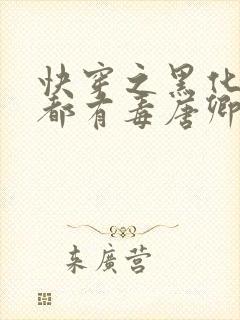 快穿之黑化
都有毒唐卿
来廣营